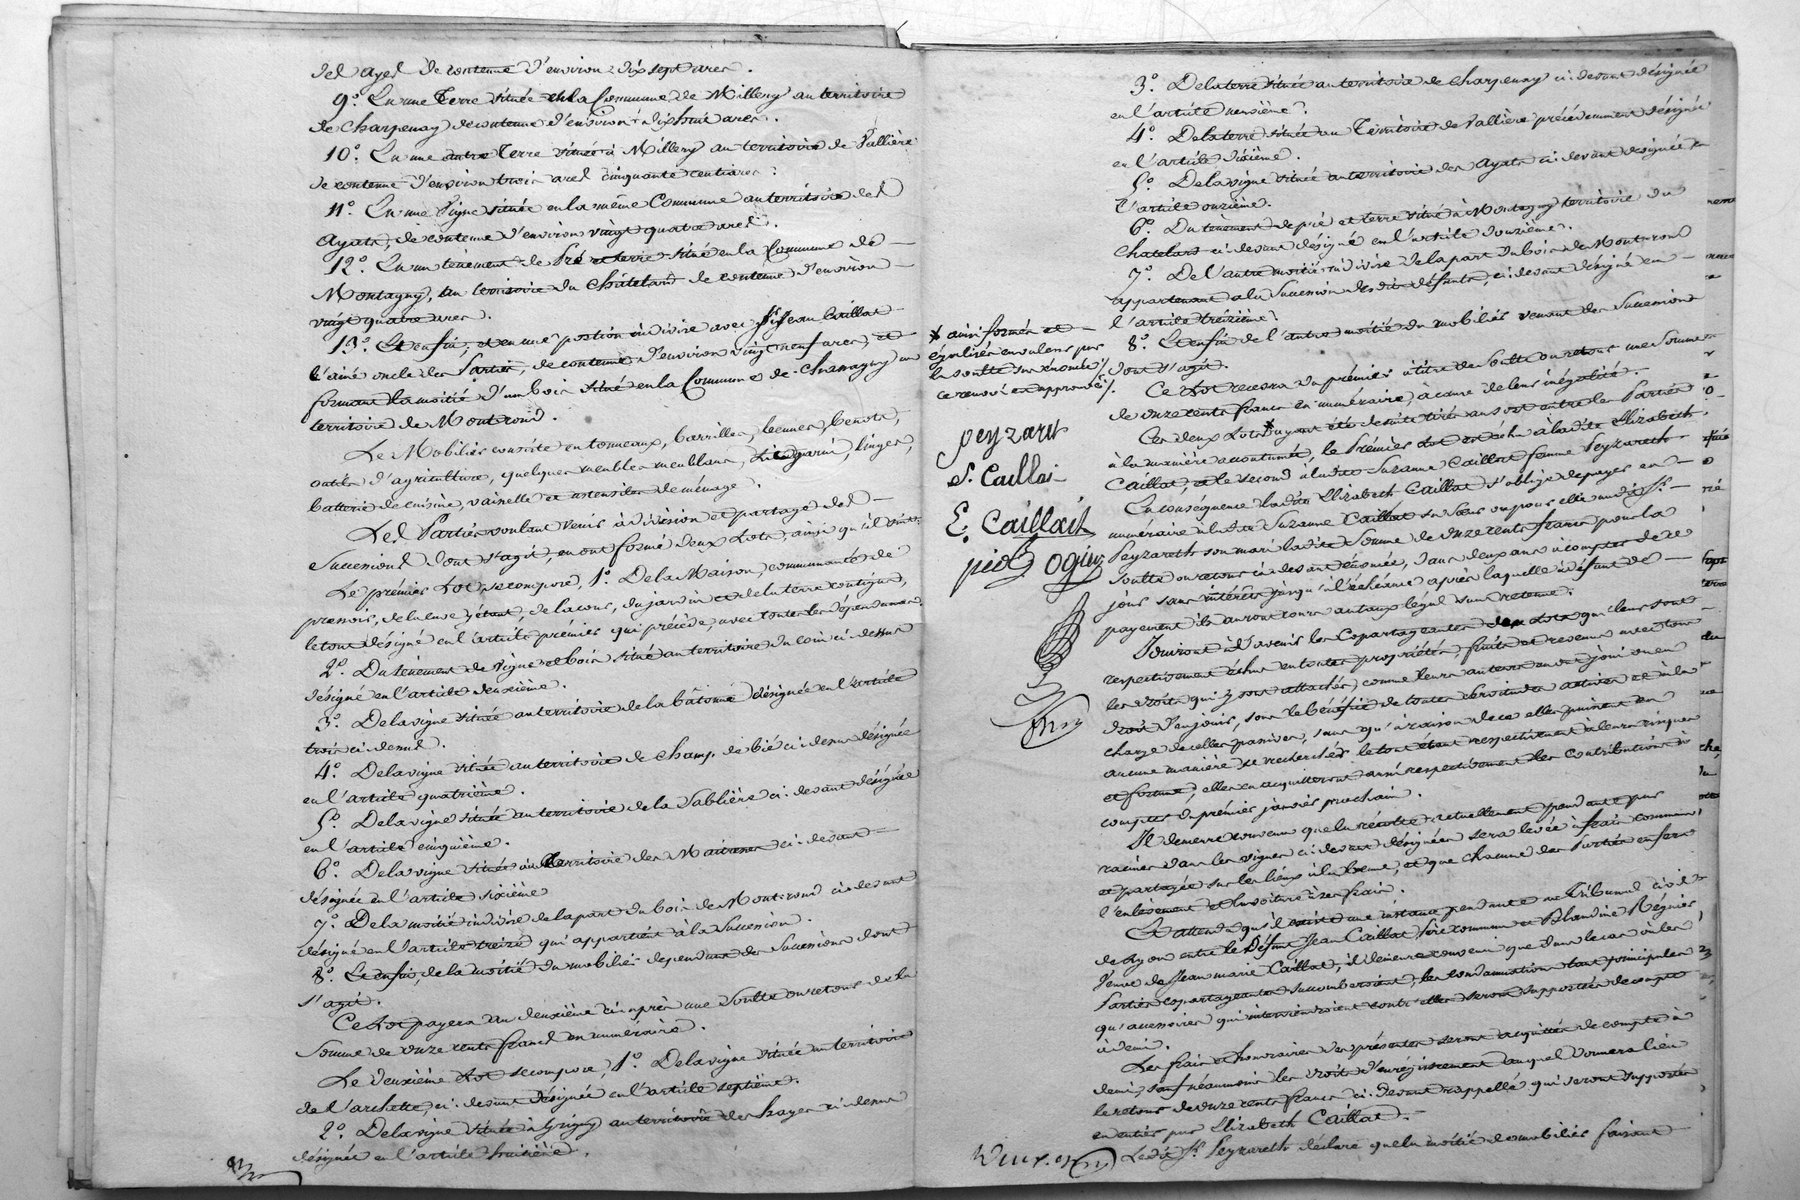 des ayes de contenue d'environ dix sept ares.
9.º En une Terre située en la Commune de Millery au territoire
de Charpenay de contenue d'environ dix huit ares.
10.º En une autre Terre située à Millery au territoire de Vallière
de contenue d'environ trois ares cinquante centiares.
11.º En une Vigne située en la même Commune au territoire des
Ayats, de contenue d'environ vingt quatre ares.
12.º En un tenement de Pré et terre situé en la Commune de
Montagny, au territoire du Châtelard de contenue d'environ
vingt quatre ares.
13.º Et enfin, et en une portion indivise avec Sr Jean Caillat
l'ainé oncle des Parties, de contenue d'environ vingt neuf ares, et
formant la moitié d'un bois situé en la Commune de Chassagny au
territoire de Montrond.
Le Mobilier consiste en tonneaux, barrilles, bennes, benots,
outils d'agriculture, quelques meubles meublans, lit garni, linges,
batterie de cuisine, vaisselle et ustensiles de ménage.
Les Parties voulant venir à division et partage des
Successions dont s'agit, en ont formé deux Lots, ainsi qu'il suit:
Le premier Lot se compose, 1.º De la Maison, communauté de
pressoir, de la cuve y étant, de la cour, du jardin et de la terre contigue,
le tout désigné en l'article premier qui précède, avec toutes les dépendances.
2.º Du tènement de Vigne et bois situé au territoire du coin ci-dessus
désigné en l'article deuxième.
3.º De la vigne située au territoire de la bâtonne désignée en l'article
trois ci-dessus.
4.º De la vigne située au territoire de Champ de bié ci-dessus désignée
en l'article quatrième.
5.º De la vigne située au territoire de la Sablière ci-devant désignée
en l'article cinquième.
6.º De la vigne située au territoire des ci-devant
désignée en l'article sixième
7.º De la moitié indivise de la part du bois de Montrond ci-devant
désigné en l'article treize qui appartient à la Succession.
8.º Et enfin, de la moitié du mobilier dependant des Successions dont
s'agit.
Ce Lot payera au deuxième ci-après une Soulte ou retour de la
Somme de onze cents francs en numéraire.
Le deuxième Lot se compose, 1.º De la vigne située au territoire
de l'archette, ci-devant désignée en l'article septième.
2.º De la vigne située à Grigny au territoire des hayes ci-dessus
désignée en l'article huitième.
3.º De la terre située au territoire de Charpenay ci-devant désignée
en l'article neuvième.
4.º De la terre située au Territoire de Vallière précédemment désignée
en l'article dixième.
5.º De la vigne située au territoire des Ayats ci-devant designée en
l'article onzième.
6.º Du tènement de pré et terre situé à Montagny territoire du
Chatelard ci-devant désigné en l'article douzième.
7.º De l'autre moitié indivise de la part du bois de Montrond
appartenant à la Succession desdits défunts, ci-devant désigné en
l'article treizième.
8.º Et enfin de l'autre moitié du mobilier venant des Successions
dont s'agit.
Ce Lot recevra du premier à titre de Soulte ou retour une Somme
de onze cents francs en numéraire, à cause de leur inégalité.
Ces deux Lots * ayant été de suite tirés au sort entre les Parties
à la manière accoutumée, le Premier Lot est échu à ladite Elizabeth
Caillat, et le second à ladite Suzanne Caillat femme Peyzareth.
En conséquence ladite Elizabeth Caillat s'oblige de payer en
numéraire à ladite Suzanne Caillat sa Sœur ou pour elle audit Sr
Peyzareth son mari ladite Somme de onze cents francs pour la
soulte ou retour ci-devant énoncée, dans deux ans à compter de ce
jour sans intérêts jusqu'à l'échéance après laquelle à défaut de
payement ils auront cours au taux légal sans retenue.
Jouiront à l'avenir les Copartageantes des Lots qui leur sont
respectivement échus en toutes propriétés, fruits et revenus avec tous
les droits qui y sont attachés, comme leurs auteurs en ont joui ou eu
droit d'en jouir, sous le bénéfice de toutes servitudes actives et à la
charge de celles passives, sans qu'à raison de ce elles puissent en
aucune manière se rechercher, le tout étant respectivement à leurs risques
et fortune, elles en acquitteront aussi respectivement les contributions à
compter du premier janvier prochain.
Il demeure convenu que la récolte actuellement pendante par
racines dans les vignes ci-devant désignées sera levée à frais communs
et partagée sur les lieux à la benne, et que chacune des Parties en fera
l'enlèvement et la voiture à ses frais.
Et attendu qu'il existe une instance pendante au Tribunal civil
de Lyon entre le Défunt Jean Caillat père commun et Blandine Régnier
Veuve de Jean marie Caillat, il demeure convenu que dans le cas où les
Parties copartageantes succomberoient, les condamnations tant principales
qu'accessoires qui interviendroient contr'elles seront supportées de compte
à demi.
Les frais et honoraires des présentes seront acquittés de compte à
demi, sauf néanmoins les droits d'enregistrement auquel donnera lieu
le retour de onze cents francs ci-devant rappellé qui seront supportés
en entier par Elizabeth Caillat.
Ledit Sr Peyzareth déclare que la moitié de mobilier faisant
* ainsi formés et
égalisés en valeur par
la soulte susénoncée
ce renvoi est approuvé
peyzaret
S. Caillat
E. Caillait